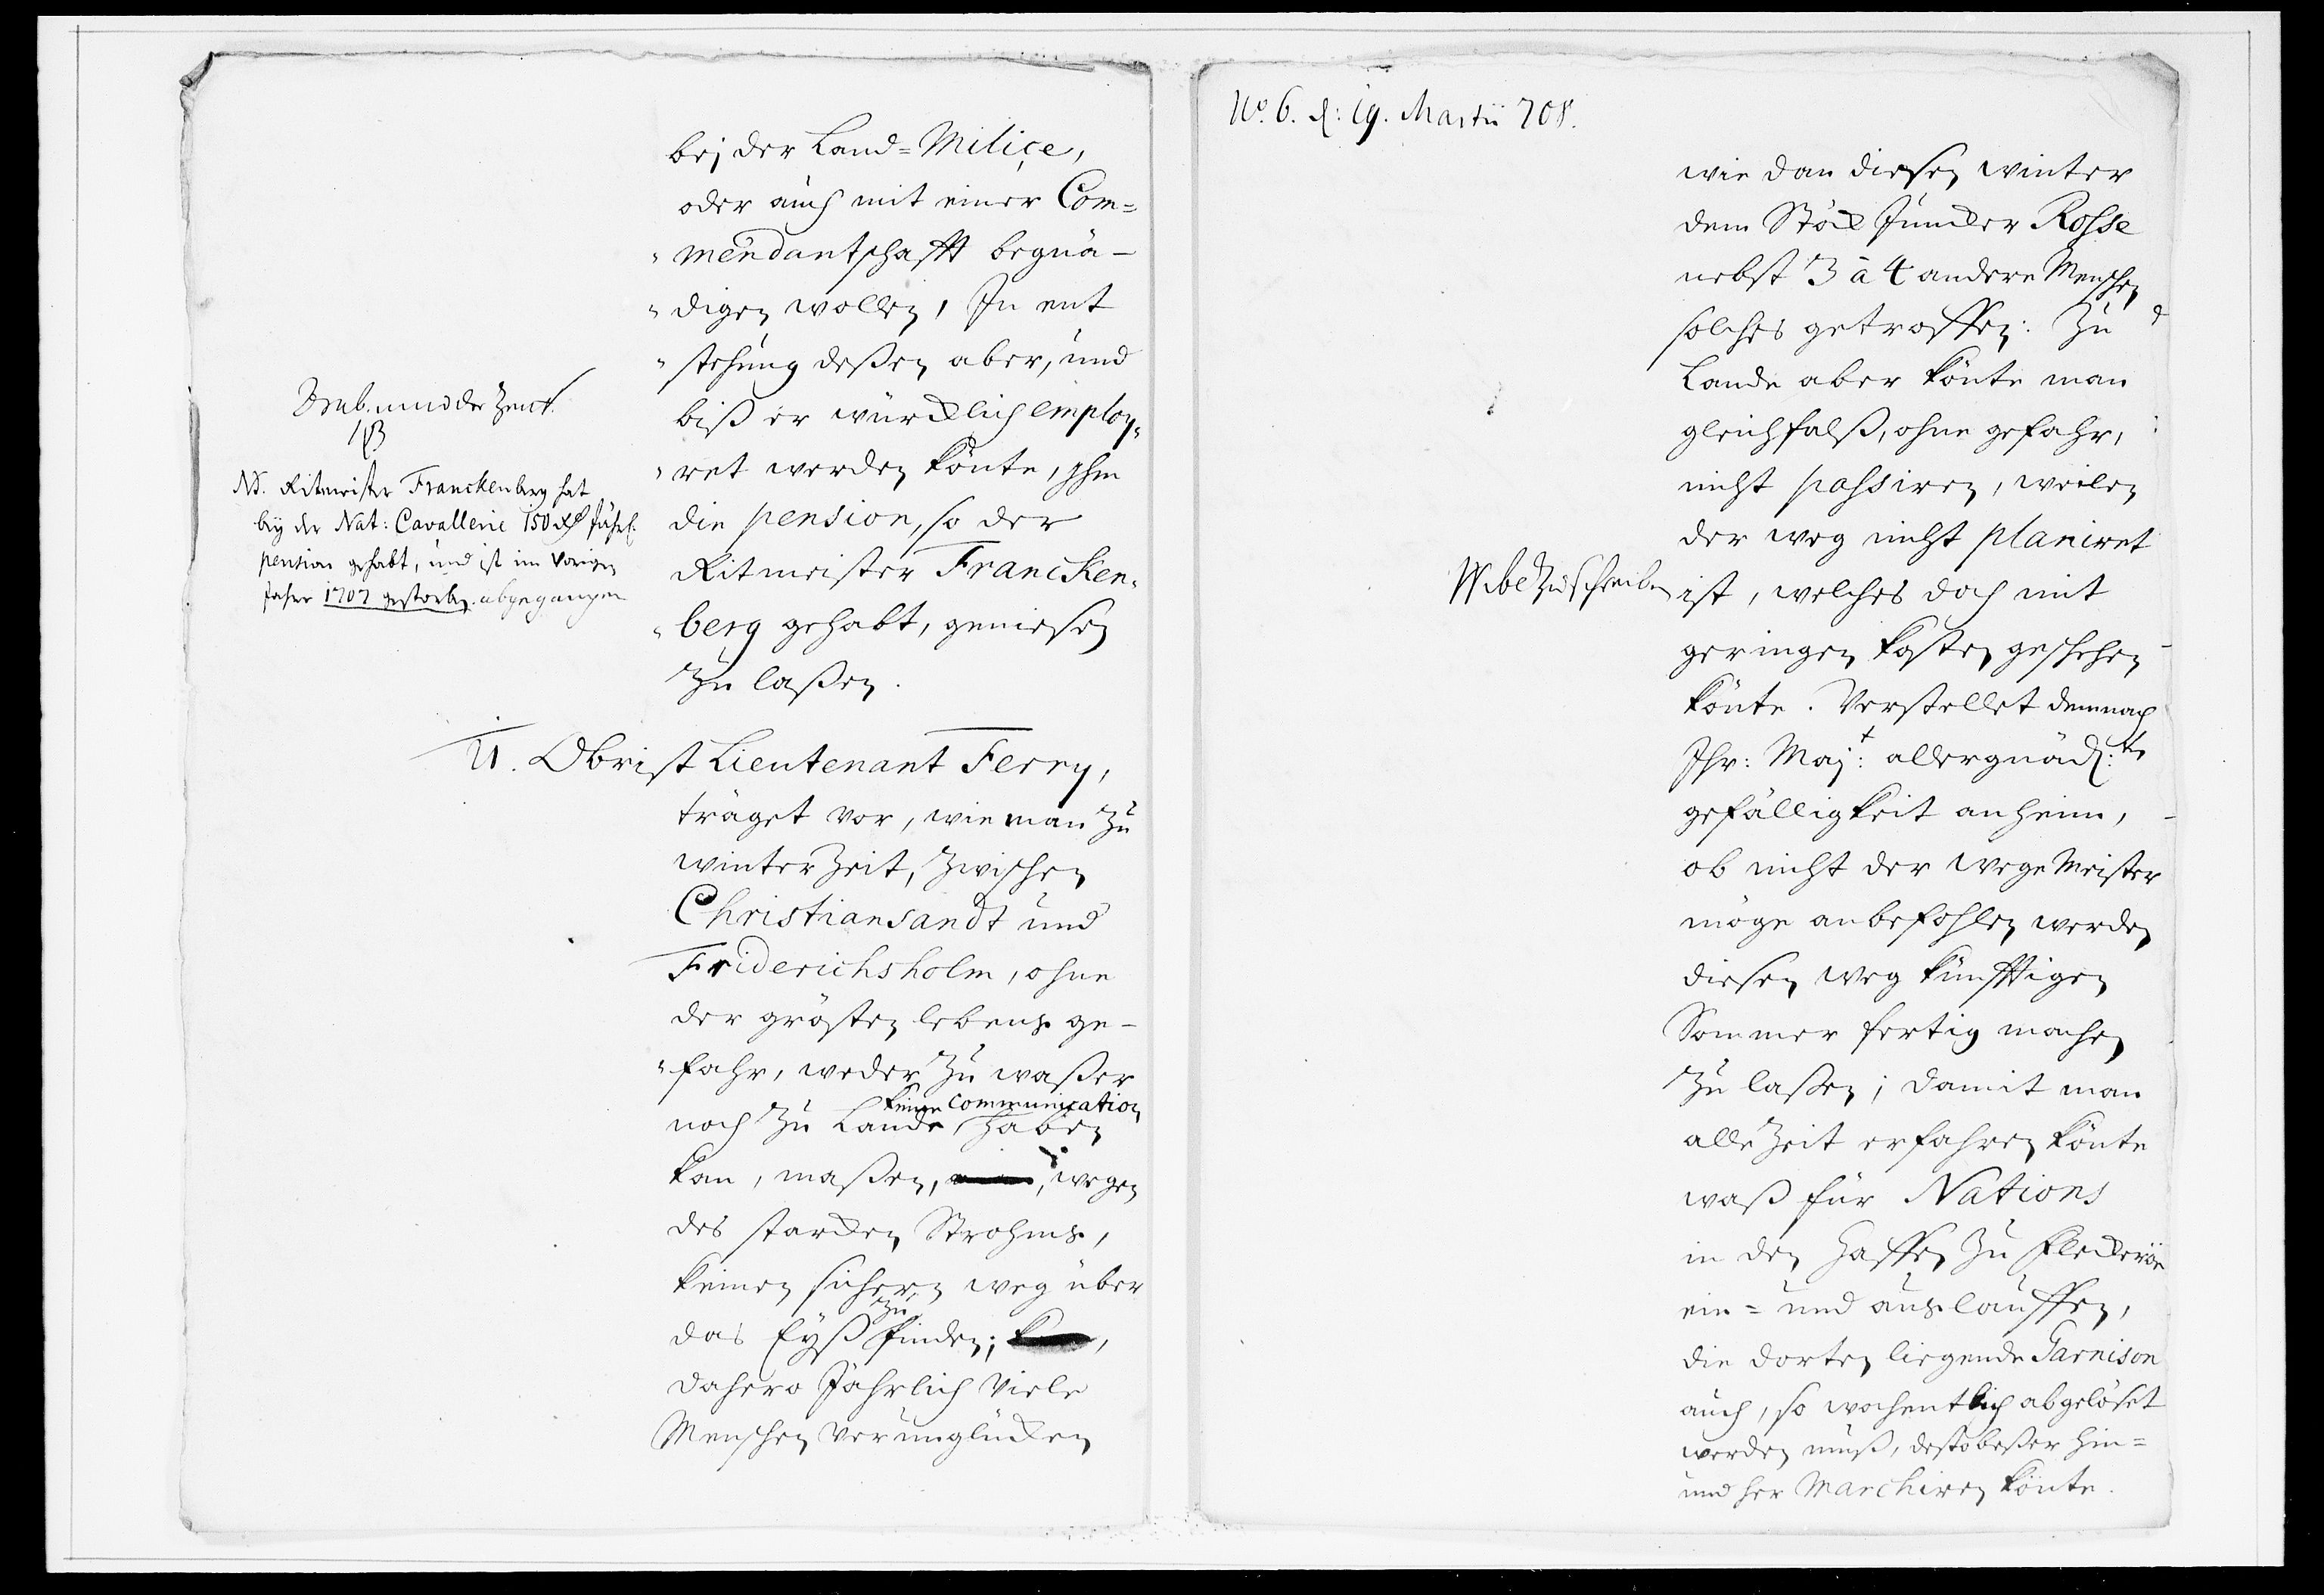 bej der Land=Milice,
oder auch mit einer Com=
"mendantschafft begnä-
"digen wollen, In ent
"stehung deßen aber, und
biß er würcklich employ,,
"ret werden könte, Ihm
die pension, so der
Ritmeister Francken,,
"berg gehabt, geniesen
Zu laßen.
NB. Ritmeister Franckenberg hat
bey der Nat: Cavallerie 150 Rd jährl.
pension gehabt, und ist im Vorigen
Jahre 1707 gestorben. abgegangen
11. Obrist Lieutenant Ferry,
träget vor, wie man Zu
winter Zeit, Zwischen
Christiansandt und
Friderichsholm, ohne
der grösten lebens ge-
"fahr, weder Zu waßer
keine Communication
noch Zu Lande haben
kan, maßen, wegen
des starcken Strohms,
keinen sichern weg über
das Eyß zu finden;
dahero Jährlich Viele
Menschen verunglücken
No. 6. d: 19. Martii 708.
wie dan diesen winter
dem Stöck Juncker Rosse
nebst 3 à 4 andere Menschen
solches getroffen: Zu
Lande aber könte man
gleichfalß, ohne gefahr,
nicht passiren, weilen
der weg nicht planiret
ist, welches doch mit
geringen kosten geschehen
könte. Verstellet demnach
Ihr: Majt: allergnäd:ste
gefälligkeit anheim,
ob nicht der wege Meister
möge anbefohlen werden
diesen weg künfftigen
Sommer fertig machen
Zu laßen; damit man
alle Zeit erfahren könte
waß für Nations
in den Haffen Zu Fleckeröe
ein= und auslauffen,
die dorten liegende Garnison
auch, so wochentlich abgelöset
werden muß, desto beßer hin=
und her Marchiren könte.